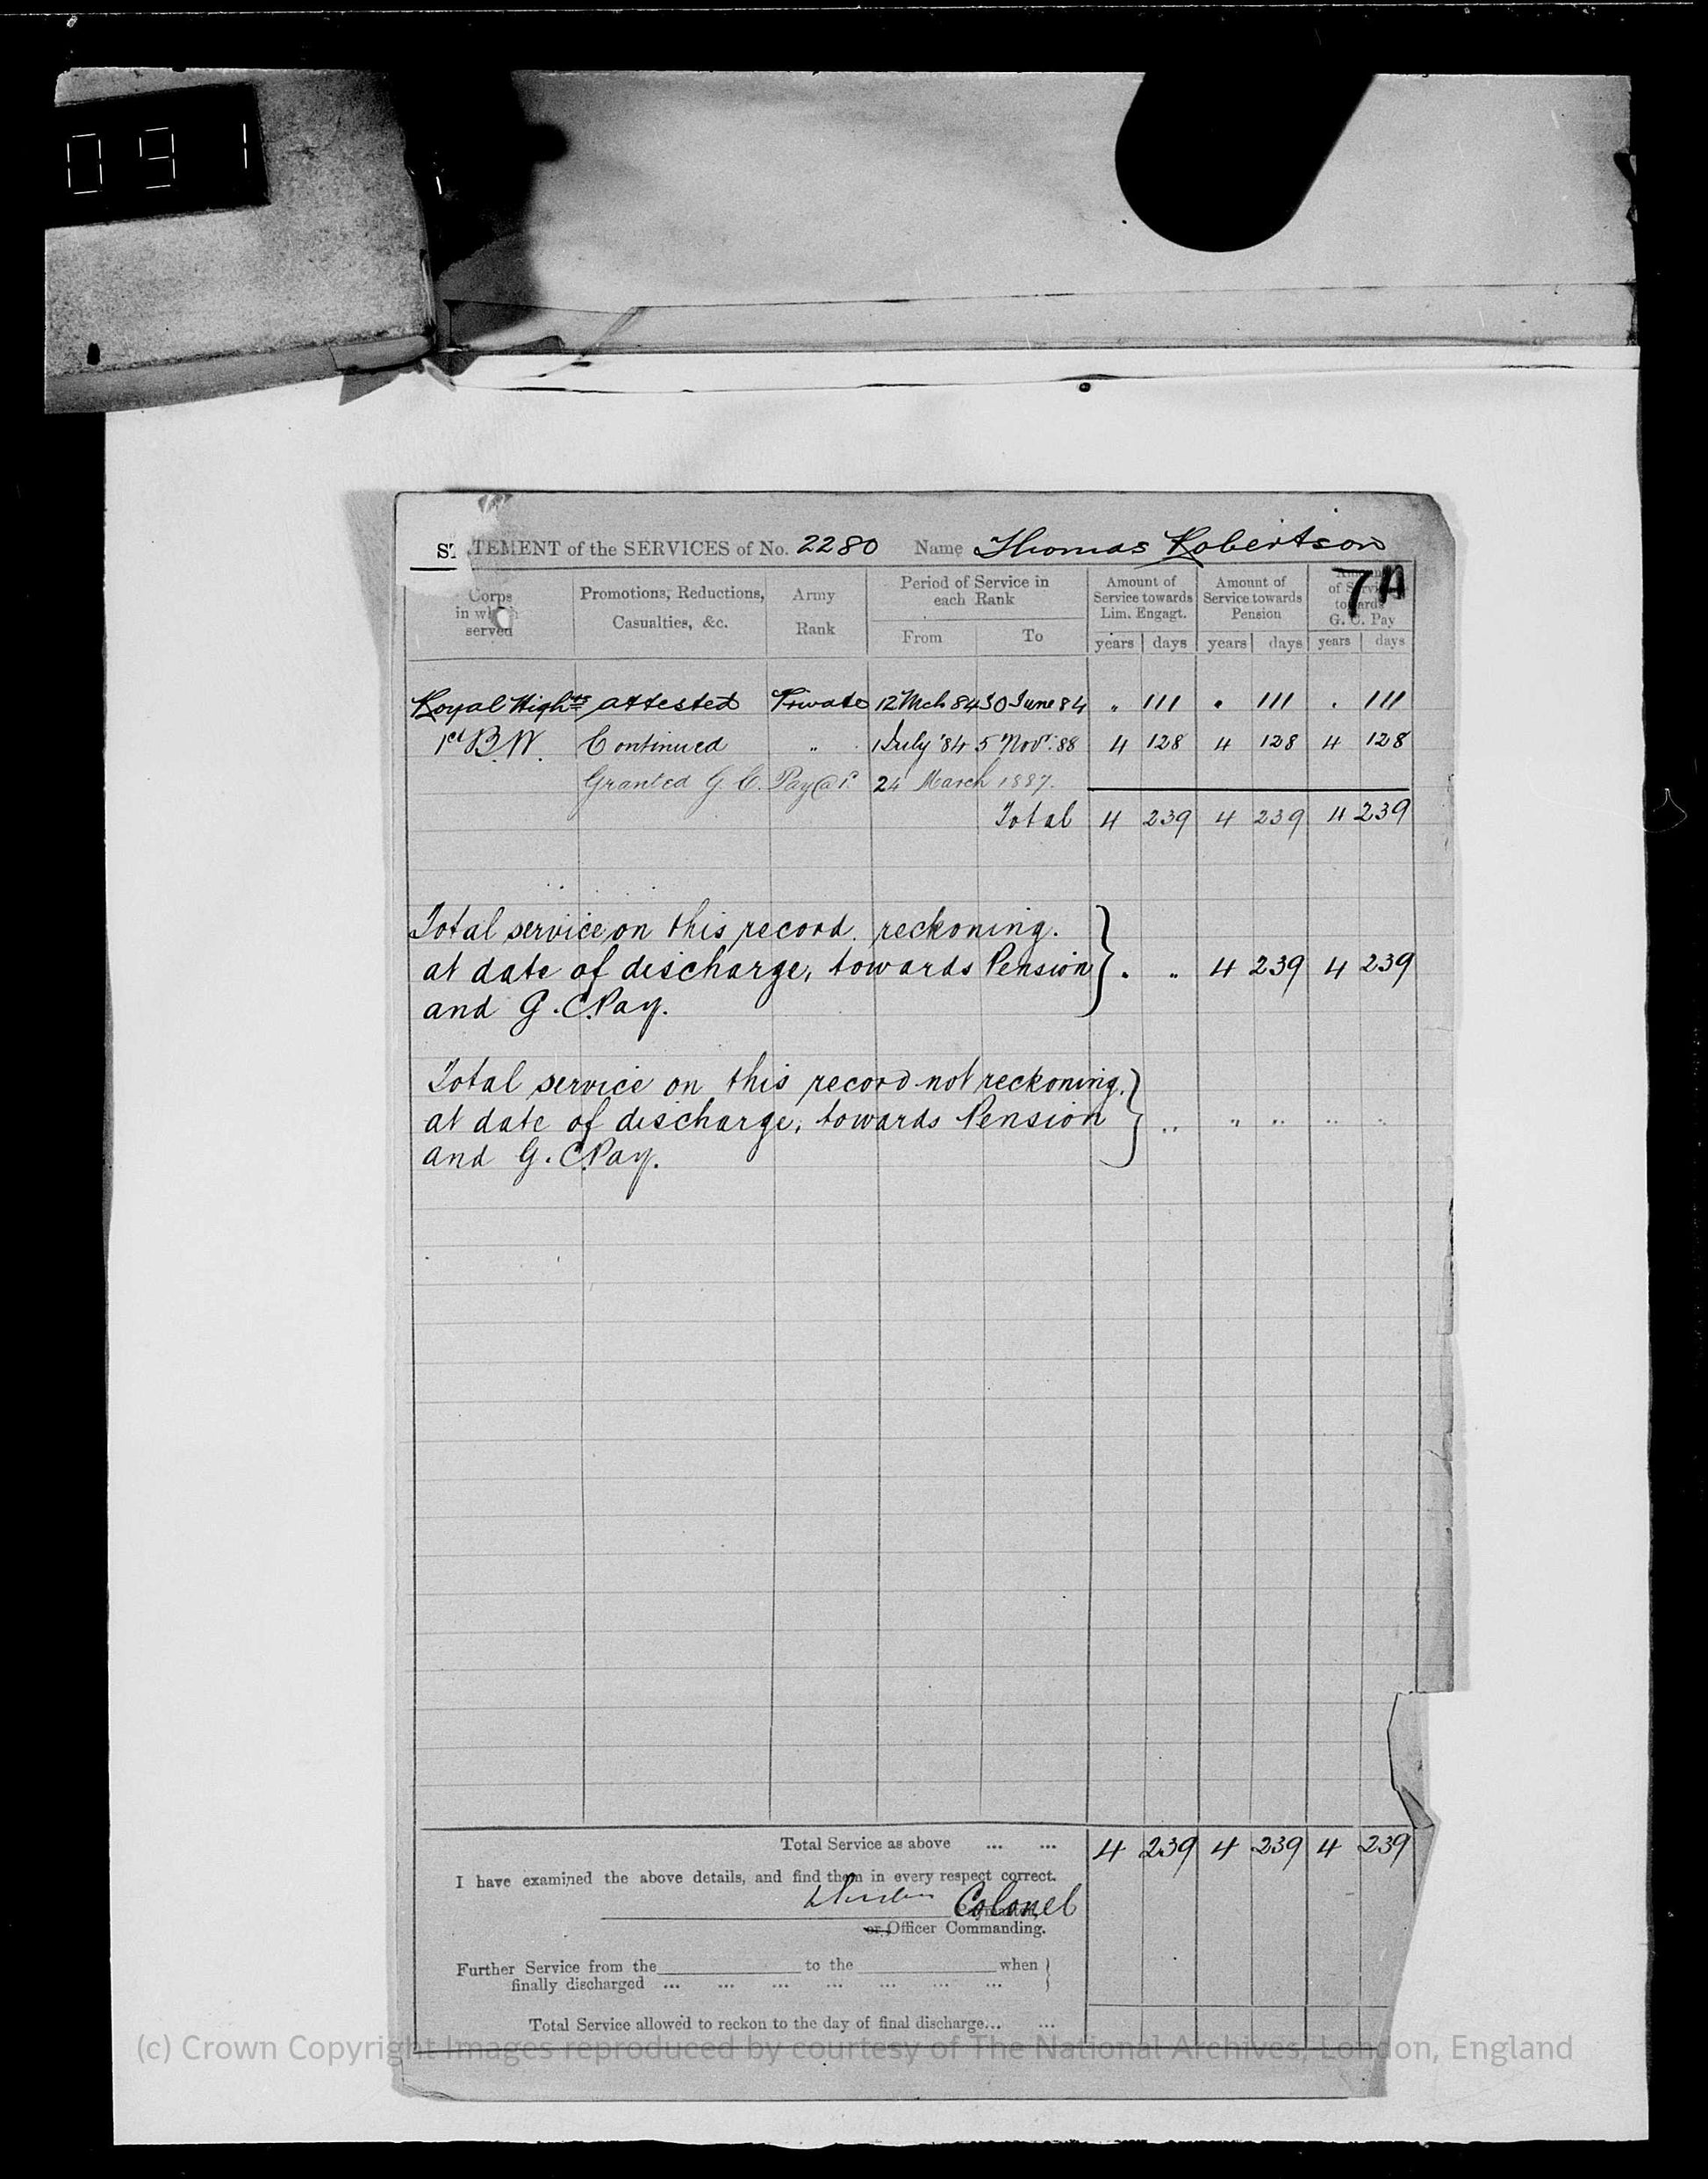 091
STATEMENT of the SERVICES of No. 2280 Name Thomas Robertson
7A
Corps in which served
Promotions, Reductions, Casualties, &c.
Army Rank
Period of Service in each Rank
From To
Amount of Service towards Lim. Engagt.
years days
Amount of Service towards Pension
years days
Amount of Service towards G. C. Pay
years days
Royal Highrs attested Private 12 Mch 84 30 June 84 " 111 " 111 " 111
1st B.W. Continued " 1 July '84 5 Novr. 88 4 128 4 128 4 128
Granted G. C. Pay @ 1d 24 March 1887.
Total 4 239 4 239 4 239
Total service on this record reckoning.
at date of discharge, towards Pension } " " 4 239 4 239
and G.C. Pay.
Total service on this record not reckoning,
at date of discharge, towards Pension } " " " " "
and G.C. Pay.
Total Service as above ... ... 4 239 4 239 4 239
I have examined the above details, and find them in every respect correct.
Colonel
or Officer Commanding.
Further Service from the to the when }
finally discharged ... ... ... ... ... ... ... }
Total Service allowed to reckon to the day of final discharge... ...
(c) Crown Copyright Images reproduced by courtesy of The National Archives, London, England